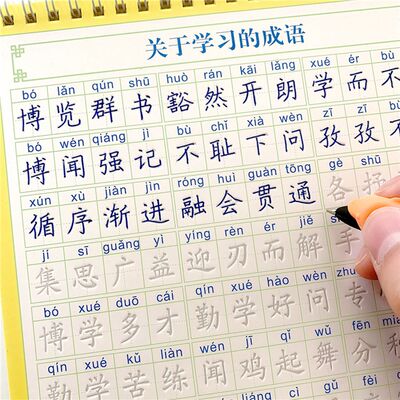 关于学习的成语
bó lǎn qún shū huò rán kāi lǎng xué ér bù
博览群书 豁然开朗 学而不
bó wén qiáng jì bù chǐ xià wèn zī zī bù
博闻强记 不耻下问 孜孜不
xún xù jiàn jìn róng huì guàn tōng gè shū
循序渐进 融会贯通 各抒
jí sī guǎng yì yíng rèn ér jiě
集思广益 迎刃而解 手
bó xué duō cái qín xué hào wèn
博学多才 勤学好问 专
xué kǔ liàn wén jī qǐ wǔ fēn
学苦练 闻鸡起舞 分